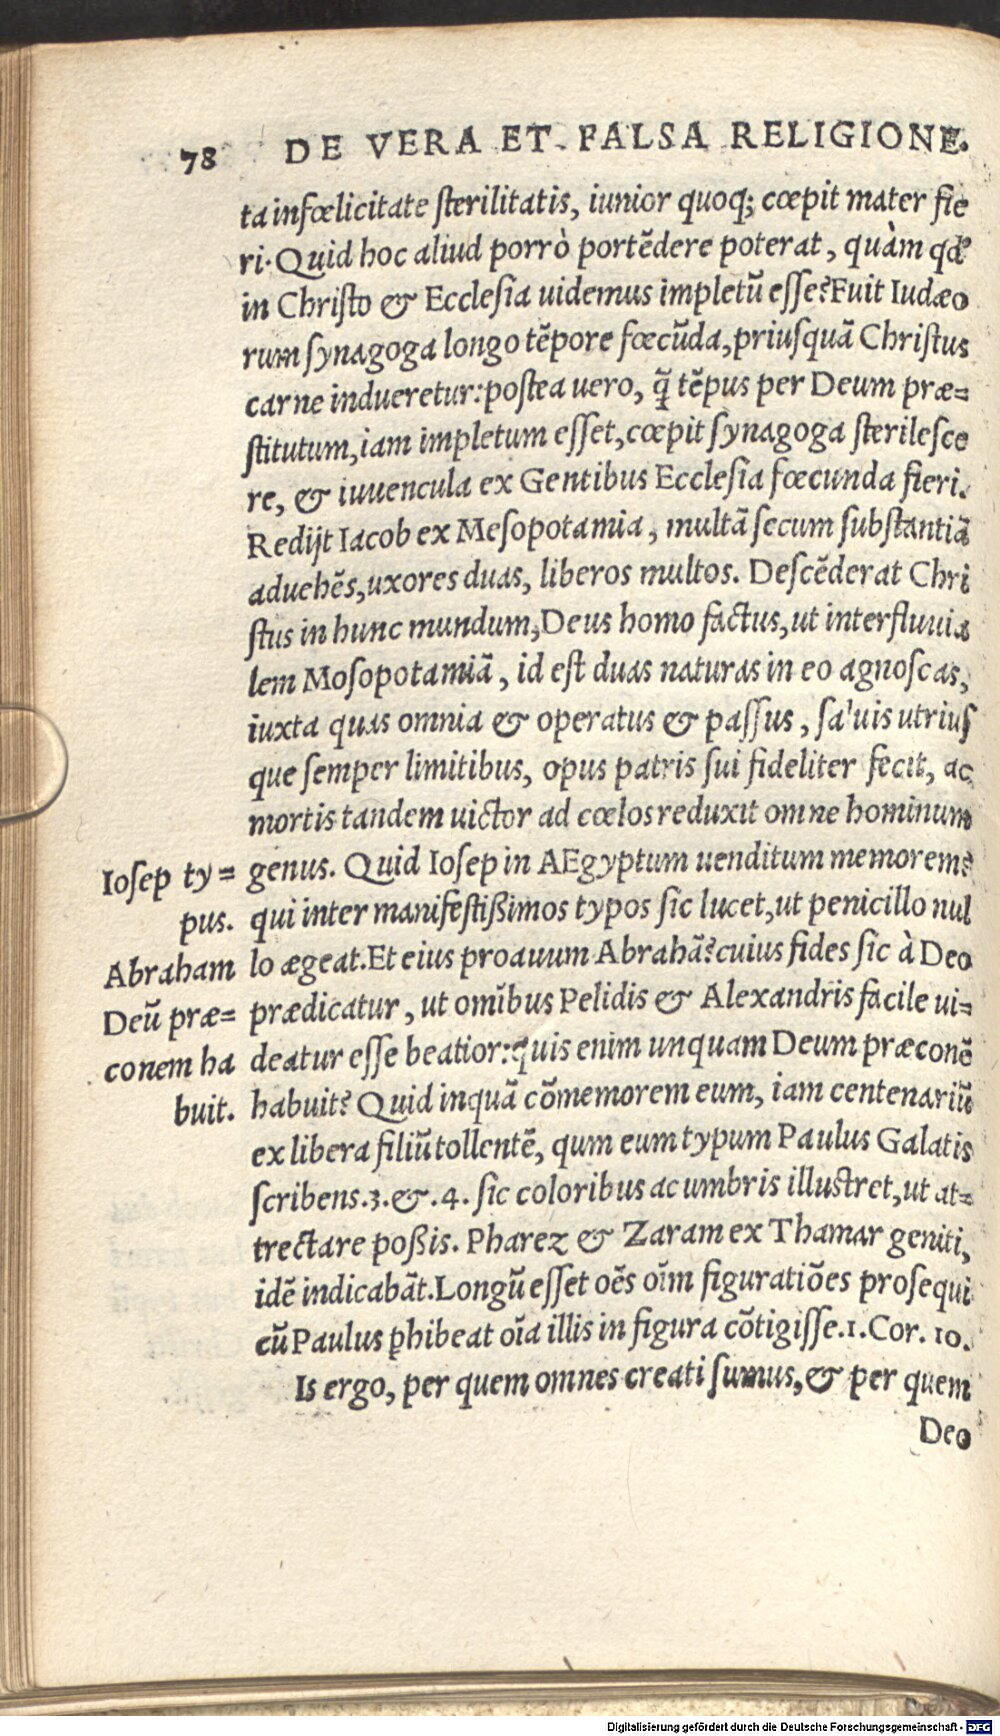 78 DE VERA ET FALSA RELIGIONE.
ta infœlicitate ſterilitatis, iunior quoq; cœpit mater fie
ri. Quid hoc aliud porrò portẽdere poterat, quàm qď
in Chriſto & Eccleſia uidemus impletũ eſſe? Fuit Iudæo
rum ſynagoga longo tẽpore fœcũda, priuſquã Chriſtus
carne indueretur: poſtea uero, q̃ tẽpus per Deum præ=
ſtitutum, iam impletum eſſet, cœpit ſynagoga ſterileſce
re, & iuuencula ex Gentibus Eccleſia fœcunda fieri.
Redijt Iacob ex Meſopotamia, multã ſecum ſubſtantiã
aduehẽs, uxores duas, liberos multos. Deſcẽderat Chri
ſtus in hunc mundum, Deus homo factus, ut interfluuia
lem Moſopotamiã, id eſt duas naturas in eo agnoſcas,
iuxta quas omnia & operatus & paſſus, ſaluis utriuſ
que ſemper limitibus, opus patris ſui fideliter fecit, ac
mortis tandem uictor ad cœlos reduxit omne hominum
genus. Quid Ioſep in AEgyptum uenditum memorem?
Ioſep ty=
qui inter manifeſtißimos typos ſic lucet, ut penicillo nul
pus.
lo ægeat. Et eius proauum Abrahã? cuius fides ſic à Deo
Abraham
prædicatur, ut omĩbus Pelidis & Alexandris facile ui=
Deũ præ=
deatur eſſe beatior: quis enim unquam Deum præconẽ
conem ha
habuit? Quid inquã cõmemorem eum, iam centenariũ
buit.
ex libera filiũ tollentẽ, qum eum typum Paulus Galatis
ſcribens .3. & .4. ſic coloribus ac umbris illuſtret, ut at=
trectare poßis. Pharez & Zaram ex Thamar geniti,
idẽ indicabãt. Longũ eſſet oẽs oĩm figuratiões proſequi
cũ Paulus ꝓhibeat oĩa illis in figura cõtigiſſe. 1. Cor. 10.
Is ergo, per quem omnes creati ſumus, & per quem
Deo
Digitalisierung gefördert durch die Deutsche Forschungsgemeinschaft - DFG